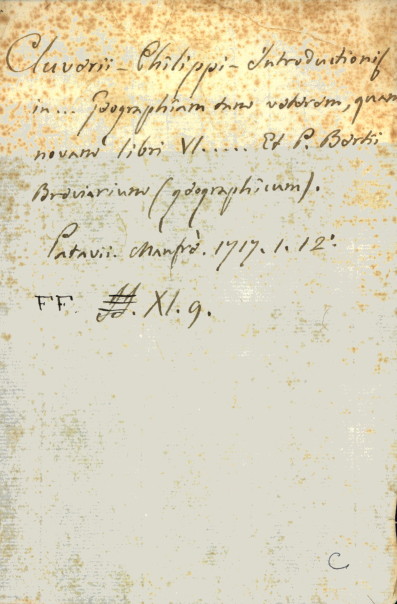 Cluverii - Philippi - Introductionis
in ... Geographiam tam veterem, quam
novam libri VI ..... Et P. Bertii
Breviarium (geographicum).
Patavii. Manfrè. 1717. 1. 12°.
FF. XI. 9.
C